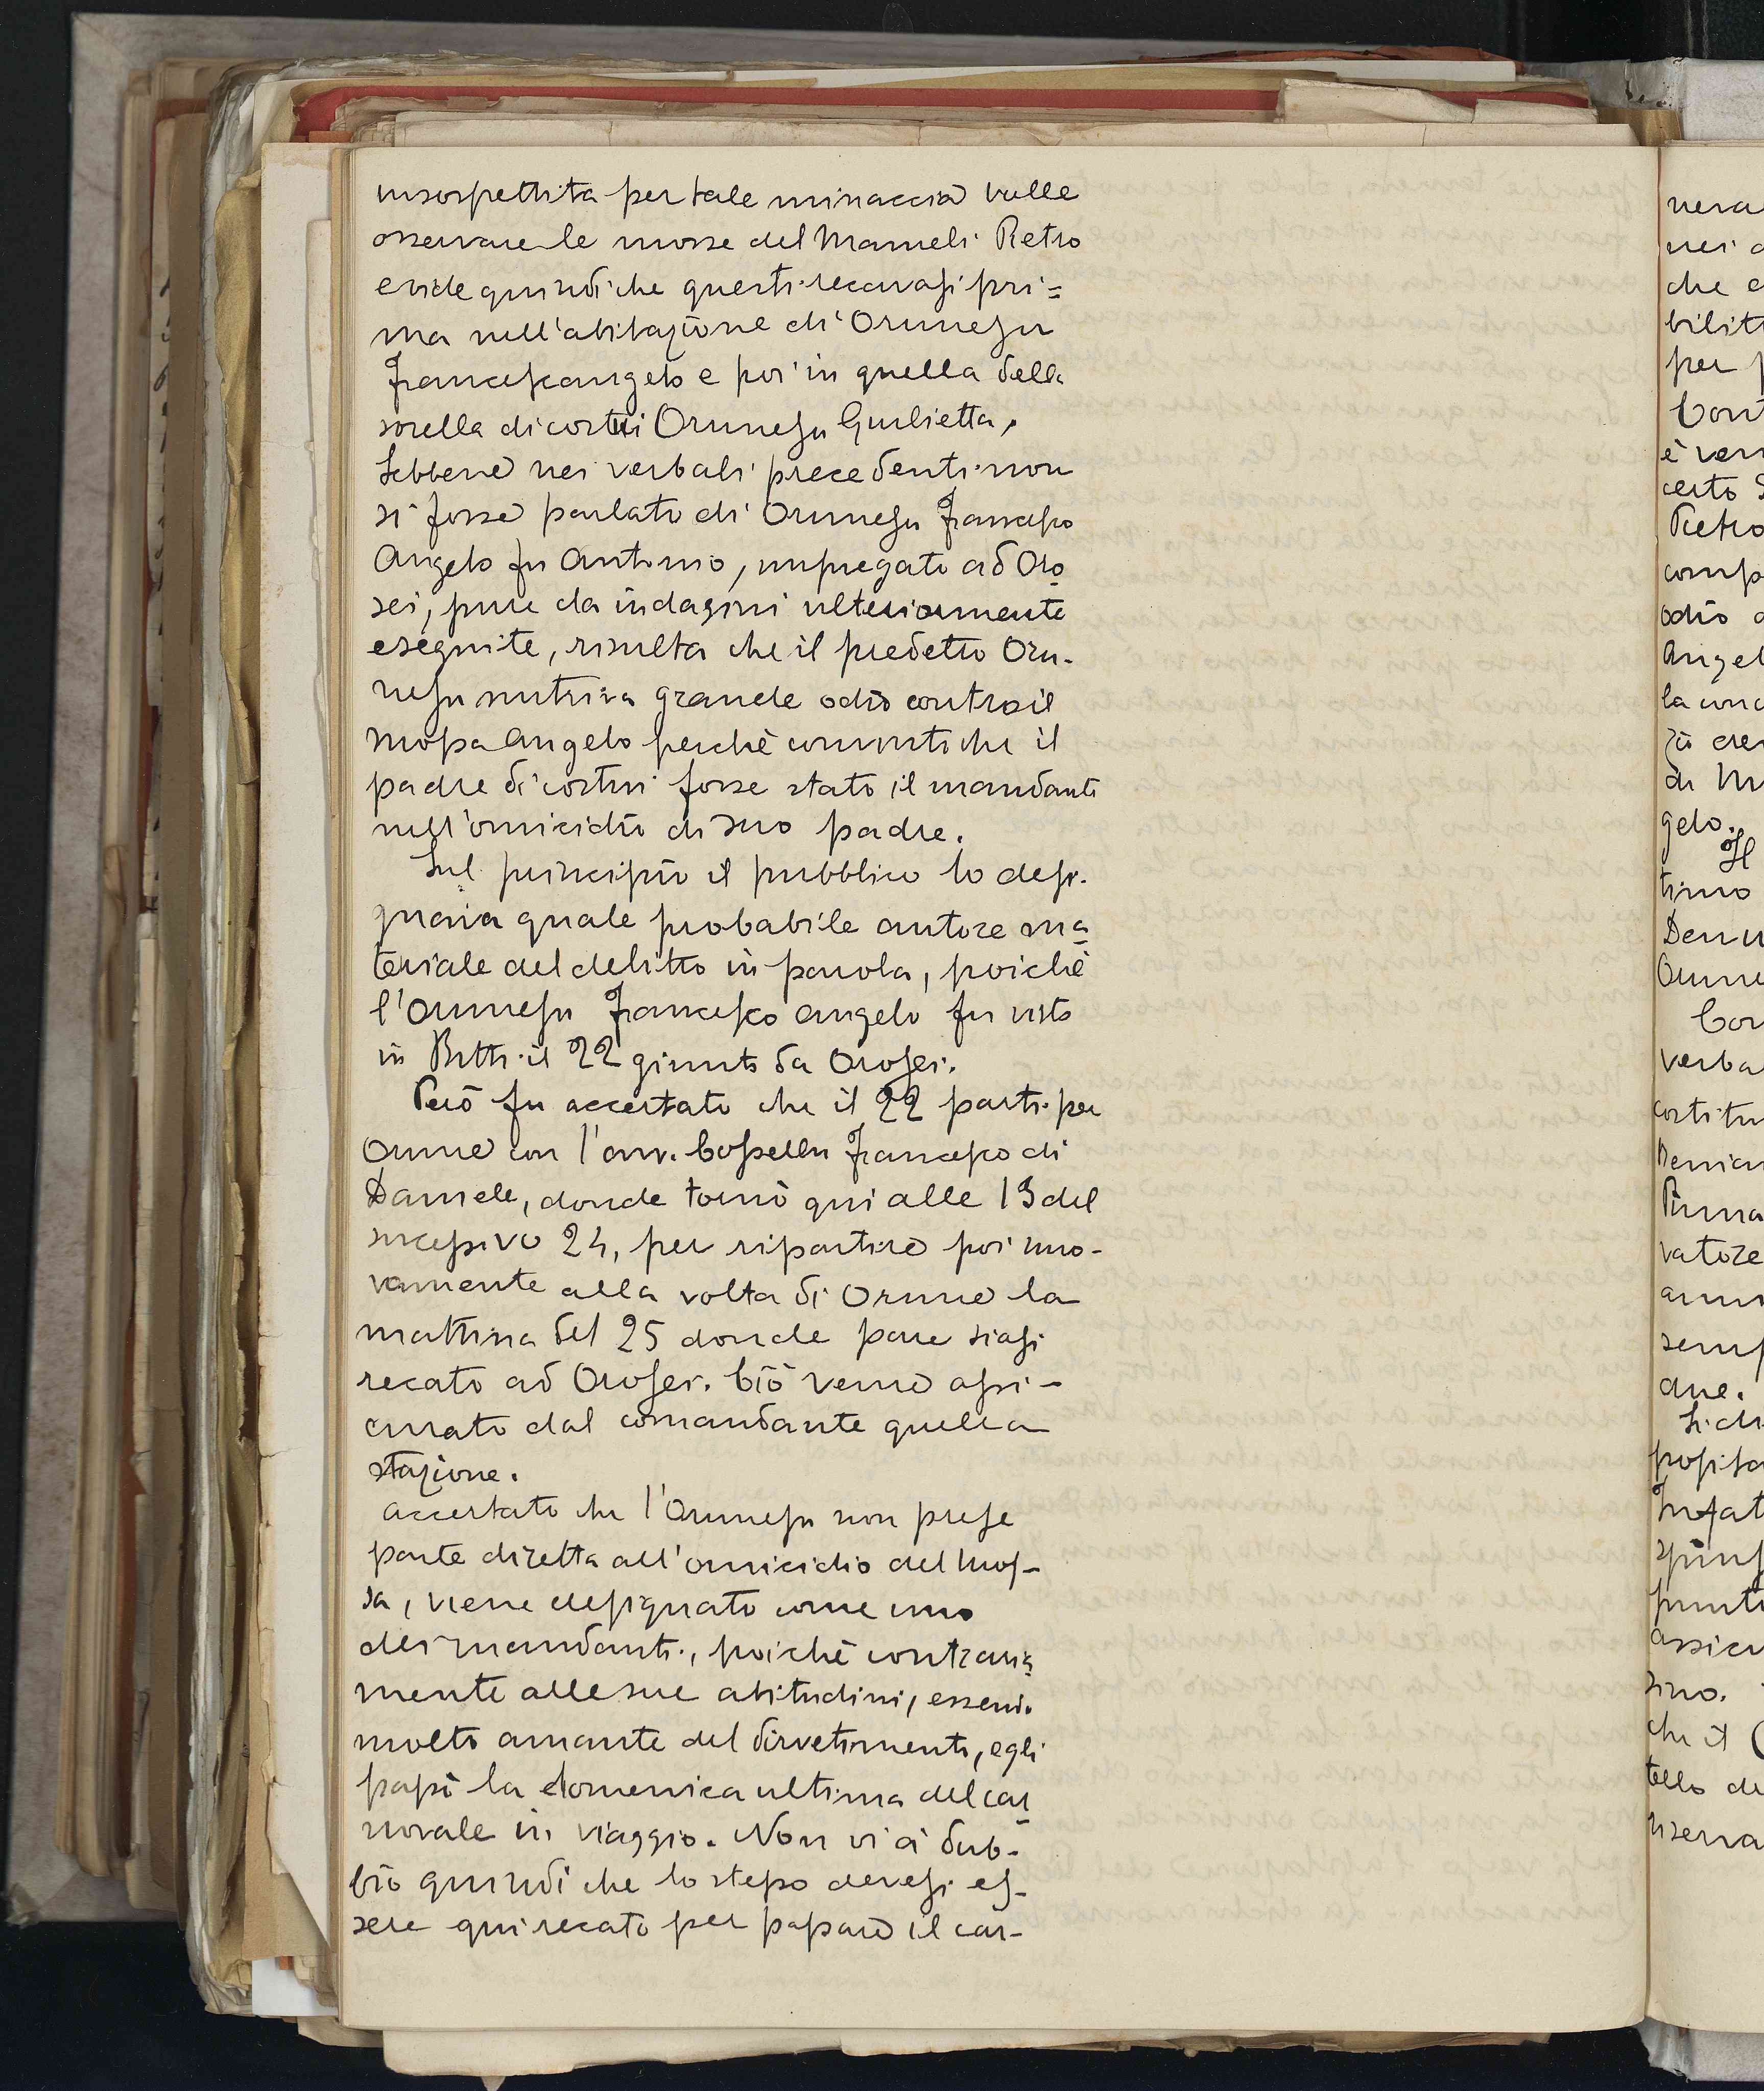 insospettita per tale minaccia volle
osservare le mosse del Mameli Pietro
e vide quindi che questi recavasi pri=
ma nell'abitazione di Orunesu
Francescangelo e poi in quella della
sorella di costui Orunesu Giulietta.
Sebbene nei verbali precedenti non
si fosse parlato di Orunesu Francesco
Angelo fu Antonio, impiegato ad Oro
sei, pure da indagini ulteriormente
eseguite, risulta che il predetto Oru-
nesu nutriva grande odio contro il
Mossa Angelo perchè convinto che il
padre di costui fosse stato il mandante
nell'omicidio di suo padre.
Sul principio il pubblico lo desi-
gnava quale probabile autore ma
teriale del delitto in parola, poichè
l'Orunesu Francesco Angelo fu visto
in Bitti il 22 giunto da Orosei.
Però fu accertato che il 22 parti per
Orune con l'avv. Cossellu Francesco di
Daniele, donde tornò qui alle 13 del
sucessivo 24, per ripartire poi nuo-
vamente alla volta di Orune la
mattina del 25 donde pare siasi
recato ad Orosei. Ciò venne assi-
curato dal comandante quella
stazione.
Accertato che l'Orunesu non prese
parte diretta all'omicidio del Mos-
sa, viene designato come uno
dei mandanti, poichè contraria
mente alle sue abitudini, essendo
molto amante del divertimento, egli
passò la domenica ultima del car
novale in viaggio. Non vi à dub-
bio quindi che lo stesso devesi es-
sere qui recato per passare il car-
nei
che
per
è ver
certo
Pietro
comp
odio
Angel
di M
gelo.
Il
timo
Denu
Orune
verba
vatore
semp
Infat
assicu
che il